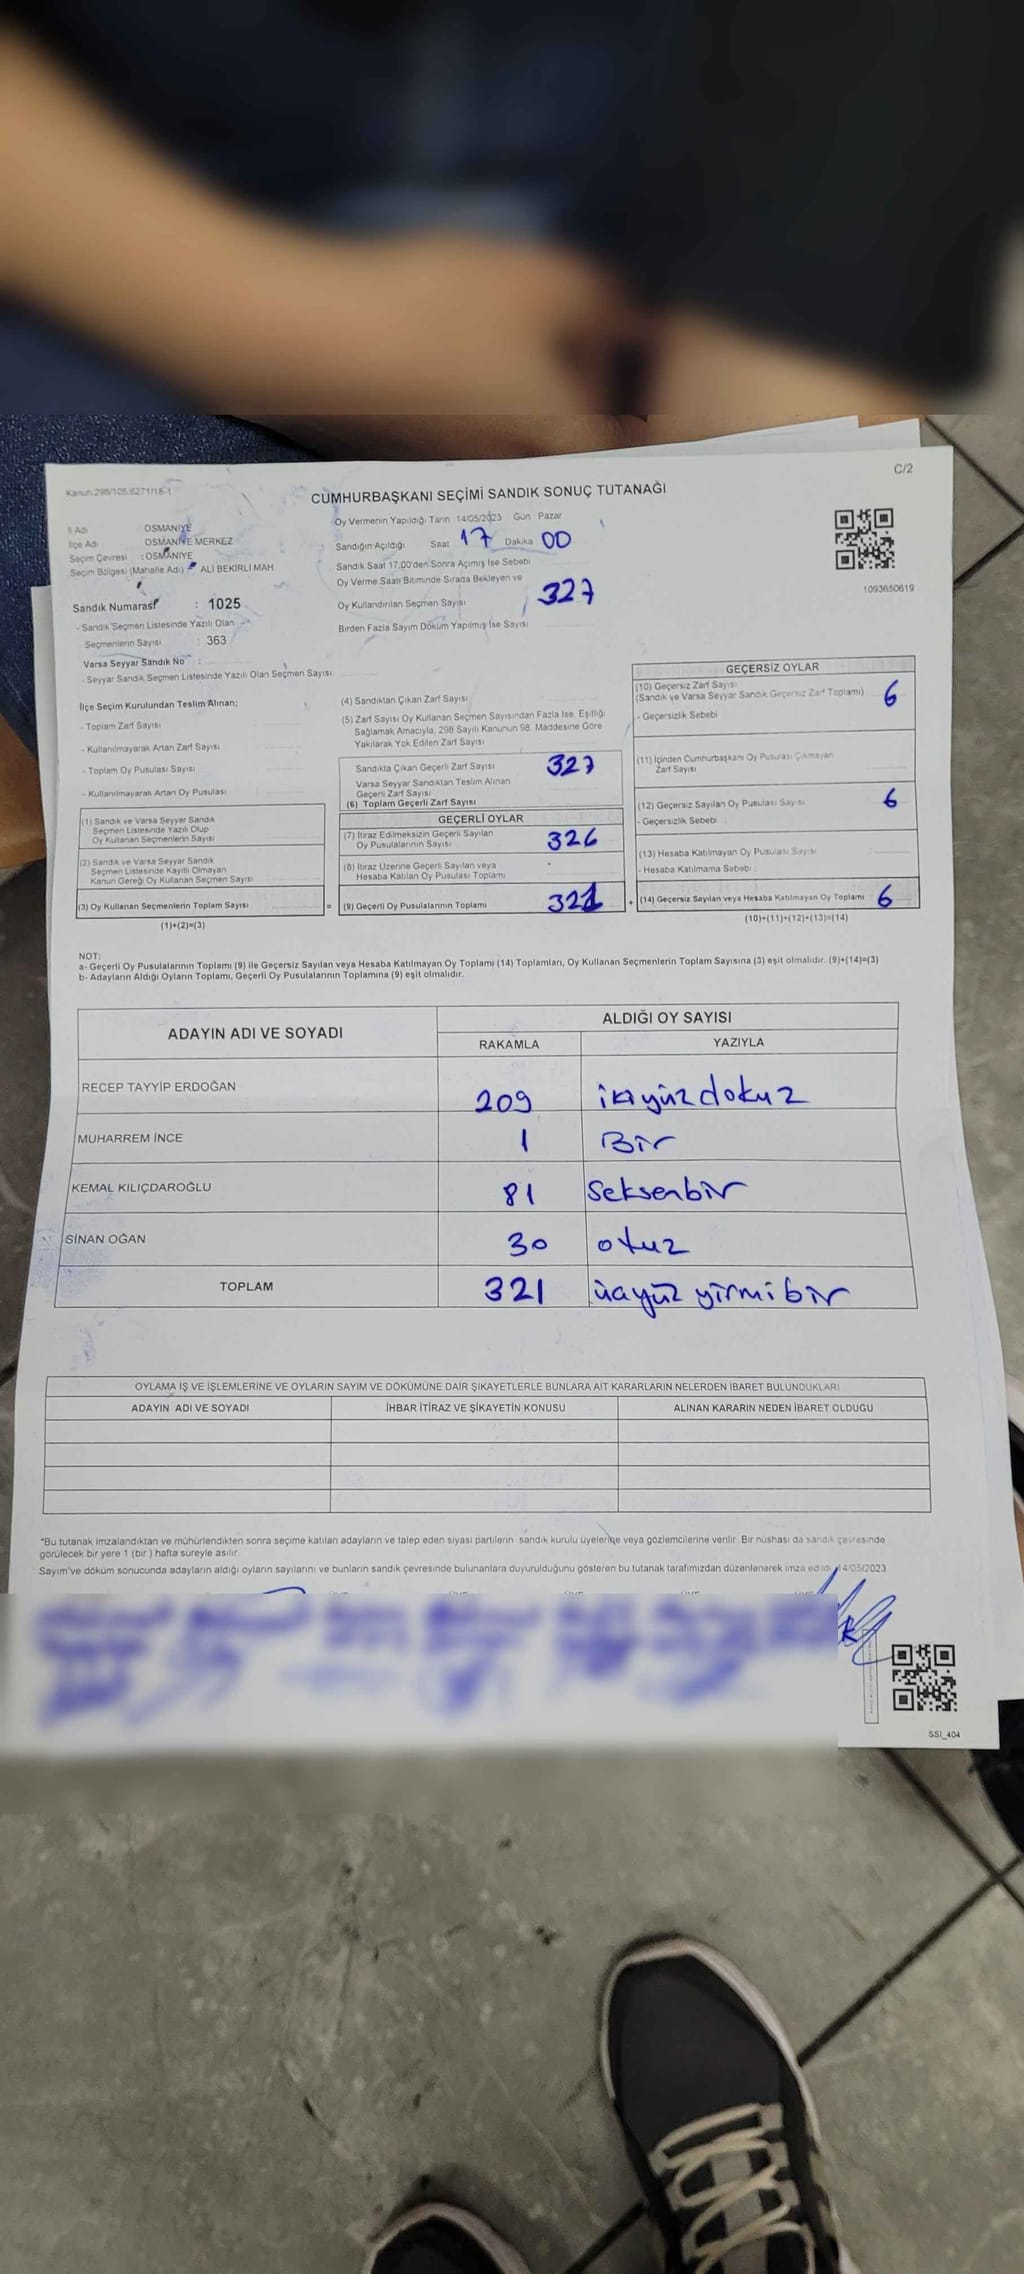 C/2
Kanun:298/105,6271/18-1
CUMHURBAŞKANI SEÇİMİ SANDIK SONUÇ TUTANAĞI
İl Adı OSMANİYE
İlçe Adı OSMANİYE MERKEZ
Seçim Çevresi : OSMANİYE
Seçim Bölgesi (Mahalle Adı) ALİ BEKİRLİ MAH
Oy Vermenin Yapıldığı Tarih 14/05/2023 Gün Pazar
Sandığın Açıldığı Saat 17 Dakika 00
Sandık Saat 17.00'den Sonra Açımış İse Sebebi
Oy Verme Saati Bitiminde Sırada Bekleyen ve
Oy Kullandırılan Seçmen Sayısı 327
Birden Fazla Sayım Döküm Yapılmış İse Sayısı
1093650619
Sandık Numarası : 1025
- Sandık Seçmen Listesinde Yazılı Olan
Seçmenlerin Sayısı : 363
Varsa Seyyar Sandık No :
- Seyyar Sandık Seçmen Listesinde Yazılı Olan Seçmen Sayısı:
İlçe Seçim Kurulundan Teslim Alınan;
- Toplam Zarf Sayısı
- Kullanılmayarak Artan Zarf Sayısı
- Toplam Oy Pusulası Sayısı
- Kullanılmayarak Artan Oy Pusulası
(1) Sandık ve Varsa Seyyar Sandık
Seçmen Listesinde Yazılı Olup
Oy Kullanan Seçmenlerin Sayısı
(2) Sandık ve Varsa Seyyar Sandık
Seçmen Listesinde Kayıtlı Olmayan
Kanun Gereği Oy Kullanan Seçmen Sayısı
(3) Oy Kullanan Seçmenlerin Toplam Sayısı =
(1)+(2)=(3)
(4) Sandıktan Çıkan Zarf Sayısı
(5) Zarf Sayısı Oy Kullanan Seçmen Sayısından Fazla İse, Eşitliği
Sağlamak Amacıyla, 298 Sayılı Kanunun 98. Maddesine Göre
Yakılarak Yok Edilen Zarf Sayısı
Sandıkta Çıkan Geçerli Zarf Sayısı 327
Varsa Seyyar Sandıktan Teslim Alınan
Geçerli Zarf Sayısı
(6) Toplam Geçerli Zarf Sayısı
GEÇERLİ OYLAR
(7) İtiraz Edilmeksizin Geçerli Sayılan
Oy Pusulalarının Sayısı 326
(8) İtiraz Üzerine Geçerli Sayılan veya
Hesaba Katılan Oy Pusulası Toplamı
(9) Geçerli Oy Pusulalarının Toplamı 321 +
GEÇERSİZ OYLAR
(10) Geçersiz Zarf Sayısı
(Sandık ve Varsa Seyyar Sandık Geçersiz Zarf Toplamı) 6
- Geçersizlik Sebebi
(11) İçinden Cumhurbaşkanı Oy Pusulası Çıkmayan
Zarf Sayısı
(12) Geçersiz Sayılan Oy Pusulası Sayısı 6
- Geçersizlik Sebebi :
(13) Hesaba Katılmayan Oy Pusulası Sayısı
- Hesaba Katılmama Sebebi :
(14) Geçersiz Sayılan veya Hesaba Katılmayan Oy Toplamı 6
(10)+(11)+(12)+(13)=(14)
NOT:
a- Geçerli Oy Pusulalarının Toplamı (9) ile Geçersiz Sayılan veya Hesaba Katılmayan Oy Toplamı (14) Toplamları, Oy Kullanan Seçmenlerin Toplam Sayısına (3) eşit olmalıdır. (9)+(14)=(3)
b- Adayların Aldığı Oyların Toplamı, Geçerli Oy Pusulalarının Toplamına (9) eşit olmalıdır.
ADAYIN ADI VE SOYADI ALDIĞI OY SAYISI
RAKAMLA YAZIYLA
RECEP TAYYİP ERDOĞAN 209 ikiyüzdokuz
MUHARREM İNCE 1 Bir
KEMAL KILIÇDAROĞLU 81 Seksenbir
SİNAN OĞAN 30 otuz
TOPLAM 321 üçyüz yirmibir
OYLAMA İŞ VE İŞLEMLERİNE VE OYLARIN SAYIM VE DÖKÜMÜNE DAİR ŞİKAYETLERLE BUNLARA AİT KARARLARIN NELERDEN İBARET BULUNDUKLARI
ADAYIN ADI VE SOYADI İHBAR İTİRAZ VE ŞİKAYETİN KONUSU ALINAN KARARIN NEDEN İBARET OLDUĞU
*Bu tutanak imzalandıktan ve mühürlendikten sonra seçime katılan adayların ve talep eden siyasi partilerin sandık kurulu üyelerine veya gözlemcilerine verilir. Bir nüshası da sandık çevresinde
görülecek bir yere 1 (bir) hafta süreyle asılır.
Sayım ve döküm sonucunda adayların aldığı oyların sayılarını ve bunların sandık çevresinde bulunanlara duyurulduğunu gösteren bu tutanak tarafımızdan düzenlenerek imza edildi. 14/05/2023
SSI_404